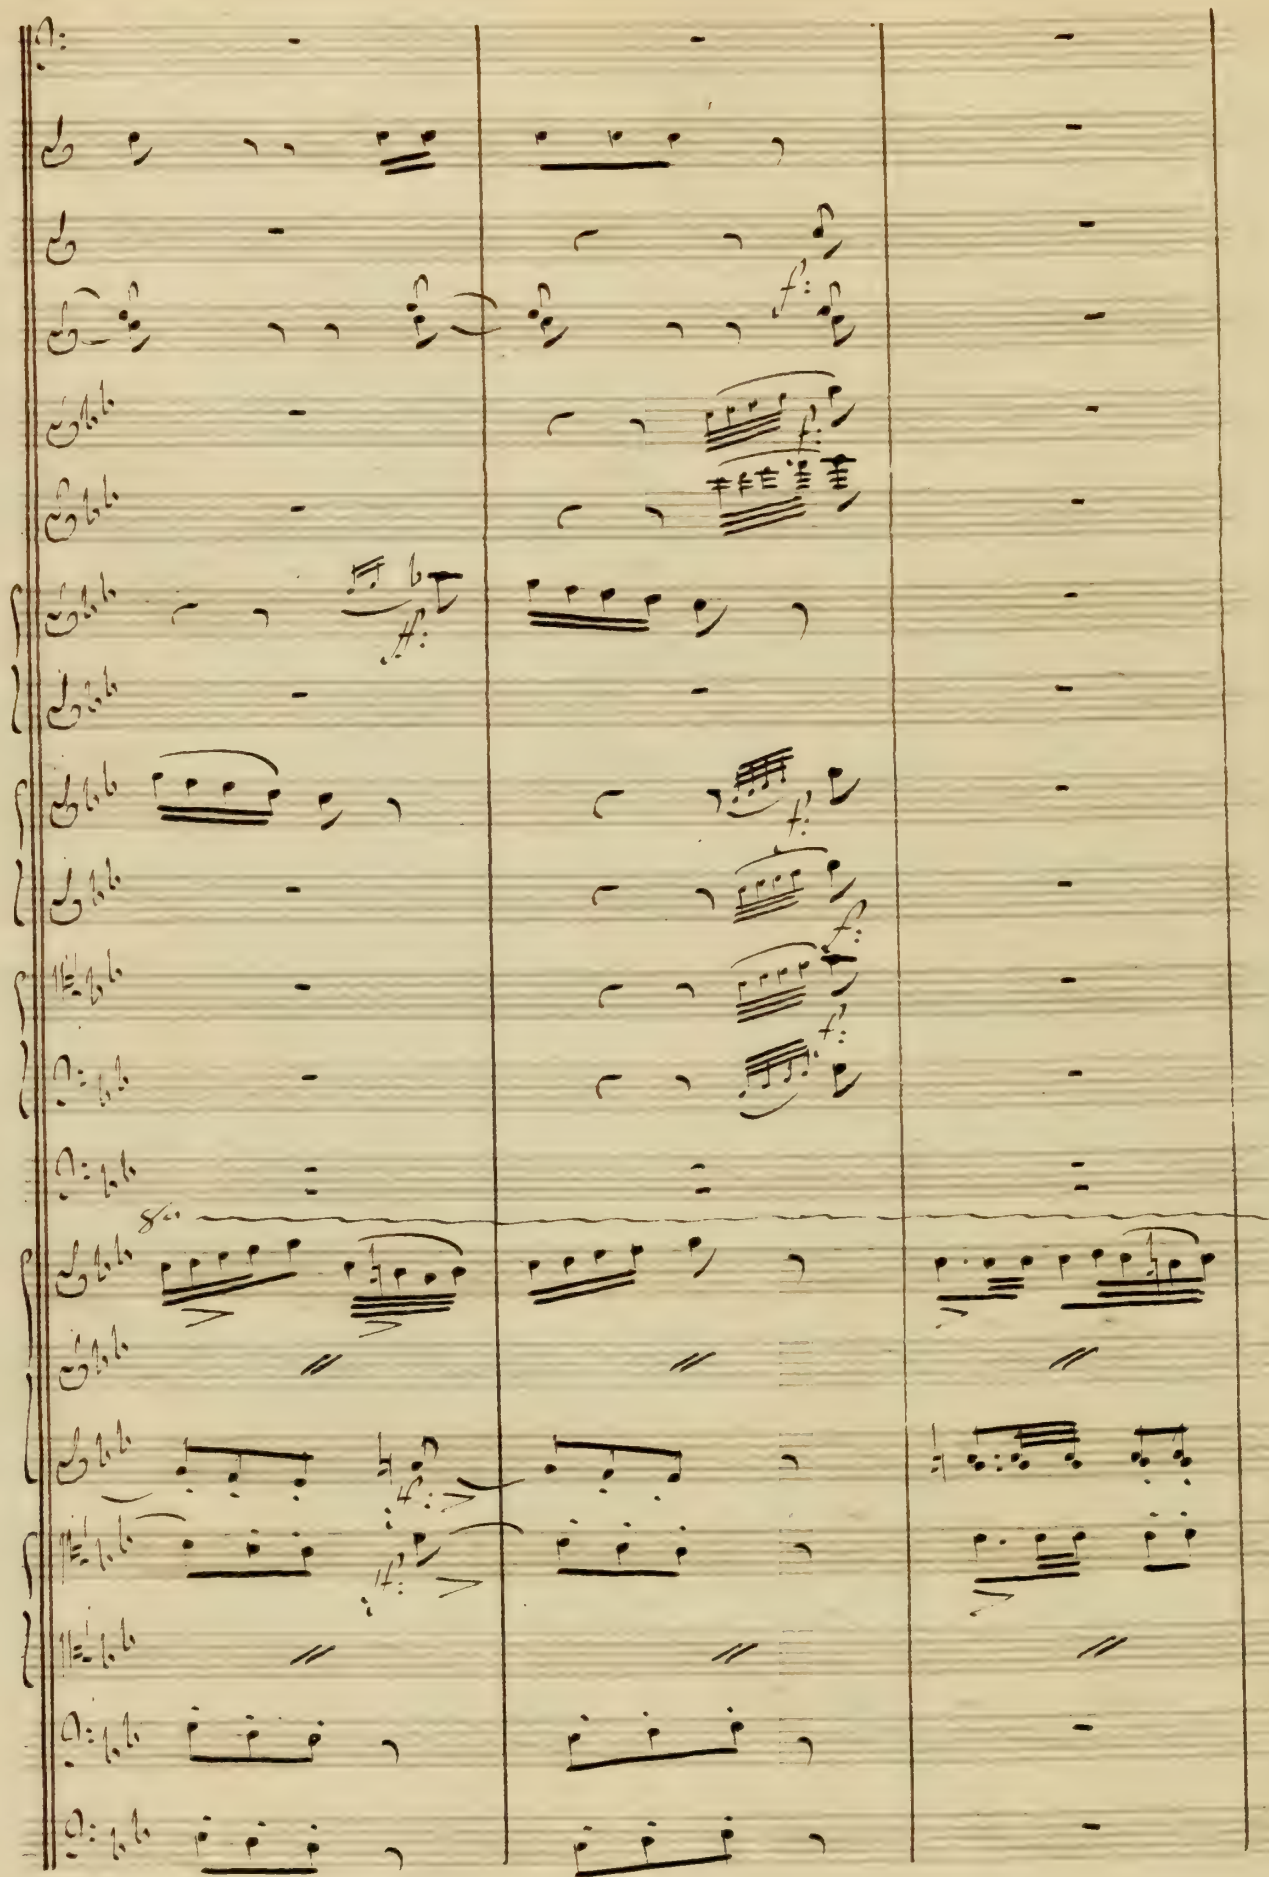 f:
f:
ff:
f:
f:
f:
8va
ff:
ff: